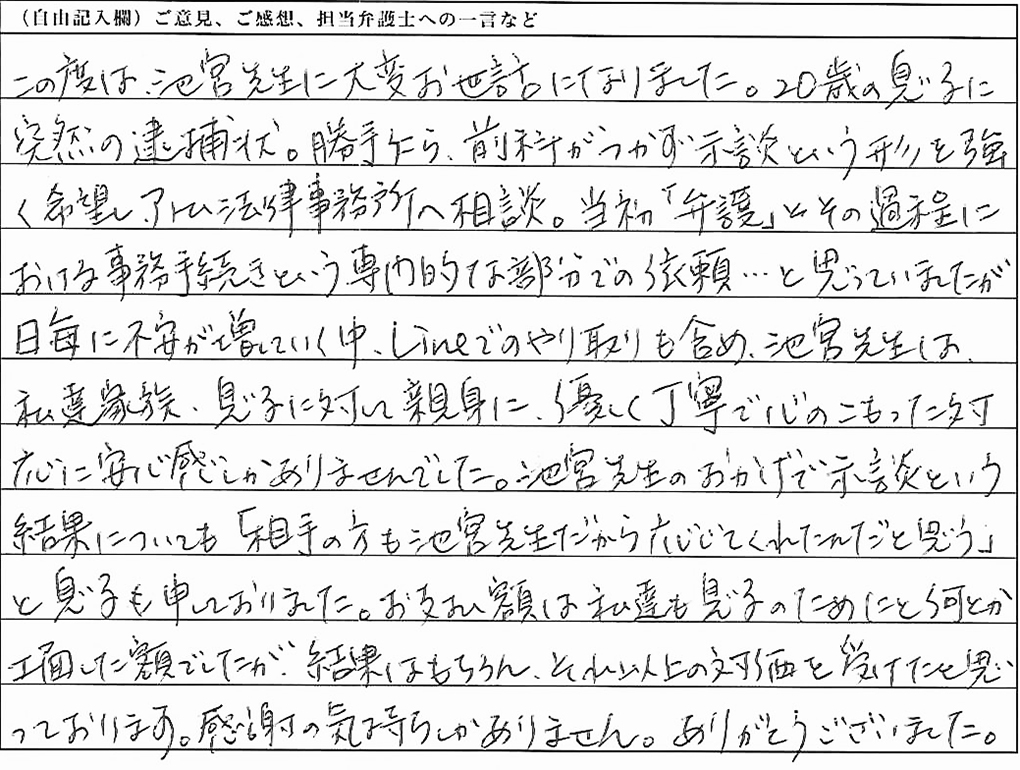 （自由記入欄）ご意見、ご感想、担当弁護士への一言など
この度は、池宮先生に大変お世話になりました。20歳の息子に
突然の逮捕状。勝手乍ら、前科がつかず示談という形を強
く希望し、アトム法律事務所へ相談。当初「弁護」とその過程に
おける事務手続きという専門的な部分での依頼…と思っていましたが
日毎に不安が増していく中、Lineでのやり取りも含め、池宮先生は、
私達家族、息子に対して親身に、優しく丁寧で心のこもった対
応に安心感しかありませんでした。池宮先生のおかげで示談という
結果についても「相手の方も池宮先生だから応じてくれたんだと思う」
と息子も申しておりました。お支払い額は私達も息子のためにと何とか
工面した額でしたが、結果はもちろん、それ以上の対価を受けたと思
っております。感謝の気持ちしかありません。ありがとうございました。